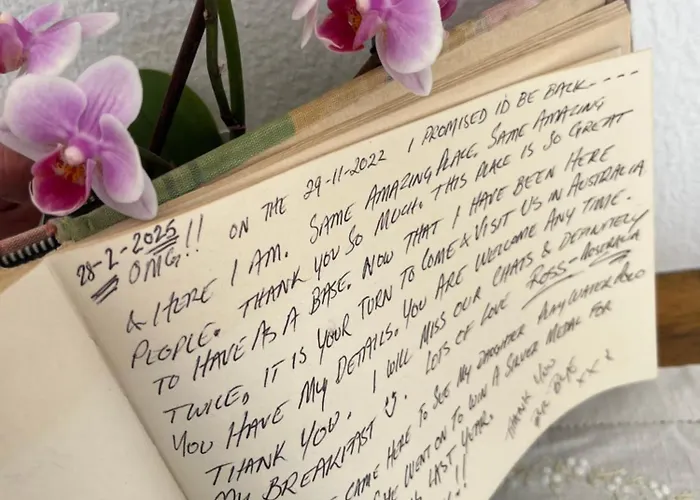 28-2-2025
OMG!! ON THE 29-11-2022 I PROMISED I'D BE BACK----
& HERE I AM. SAME AMAZING PLACE, SAME AMAZING
PEOPLE. THANK YOU SO MUCH. THIS PLACE IS SO GREAT
TO HAVE AS A BASE. NOW THAT I HAVE BEEN HERE
TWICE, IT IS YOUR TURN TO COME & VISIT US IN AUSTRALIA
YOU HAVE MY DETAILS. YOU ARE WELCOME ANY TIME.
THANK YOU. I WILL MISS OUR CHATS & DEFINITELY
MY BREAKFAST LOTS OF LOVE ROSS-AUSTRALIA
CAME HERE TO SEE MY DAUGHTER PLAY WATER POLO
WENT ON TO WIN A SILVER MEDAL FOR
LAST YEAR. THANK YOU
!! BYE BYE
XXX